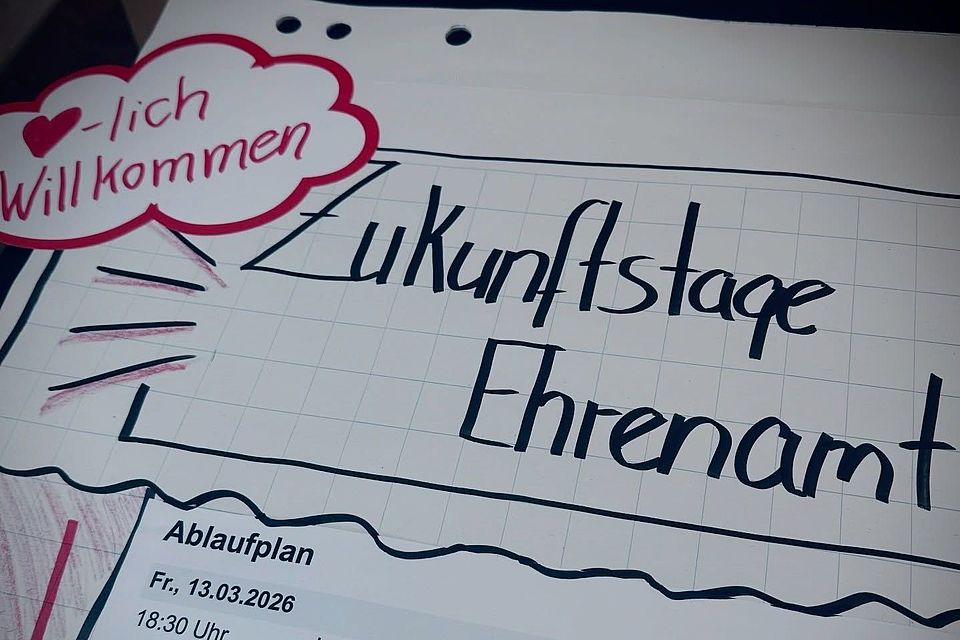 ❤-lich
Willkommen
Zukunftstage
Ehrenamt
Ablaufplan
Fr., 13.03.2026
18:30 Uhr